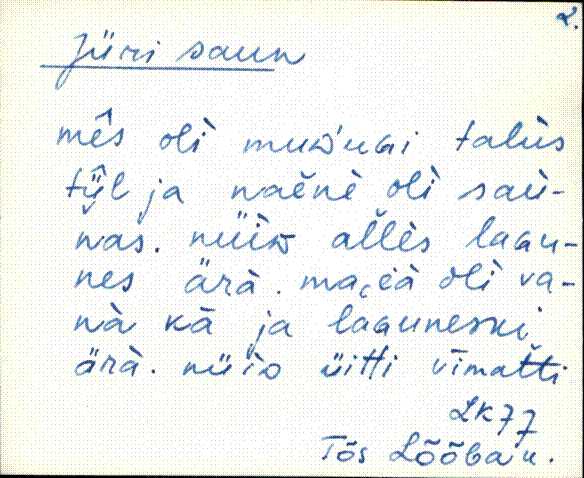 2.
Jüri saun
mês olì muw'uai talùs
tȳl ja naènè olì saù-
nas. nüìw allès laau-
nes ärà. maeà olì va-
nà kā ja laauneski
ärà. nüìw üitti vīmatti
LK77
Tõs Lõõbau.